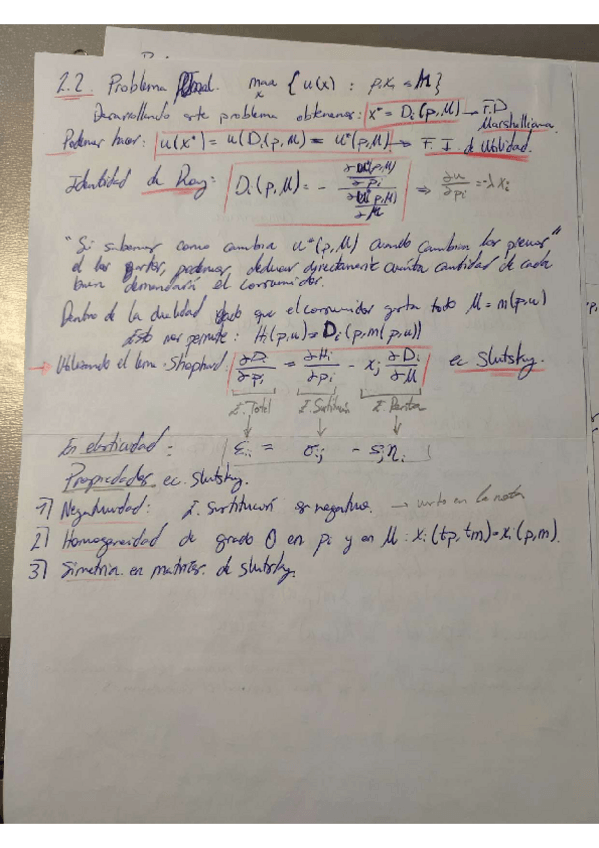 2.2 Problema Dual. max x { u(x) : pixi = M }
Desarrollando este problema obtenemos: x* = Di(p,M) → F.D Marshalliana
Podemos hacer: u(x*) = u(Di(p,M)) = u*(p,M) → F. I. de Utilidad.
Identidad de Roy: Di(p,M) = - ∂u*(p,M)/∂pi / ∂u*(p,M)/∂M ⇒ ∂u/∂pi = -λxi
"Si sabemos como cambia u*(p,M) cuando cambian los precios"
el los gastos, podemos deducir directamente cuánta cantidad de cada
bien demandará el consumidor.
Dentro de la dualidad dado que el consumidor gasta todo M = m(p,u)
ésto nos permite: Hi(p,u) = Di(p,m(p,u))
→ Utilizando el lema Shephard: ∂Di/∂pi = ∂Hi/∂pi - xj ∂Di/∂M ec Slutsky.
E. Total E. Sustitución E. Renta
En elasticidad: εij = σij - sjηi
Propiedades ec. Slutsky.
1) Negatividad: E. Sustitución es negativo. →
2) Homogeneidad de grado 0 en pi y en M: xi(tp,tm)=xi(p,m).
3) Simetria en matrices de Slutsky.